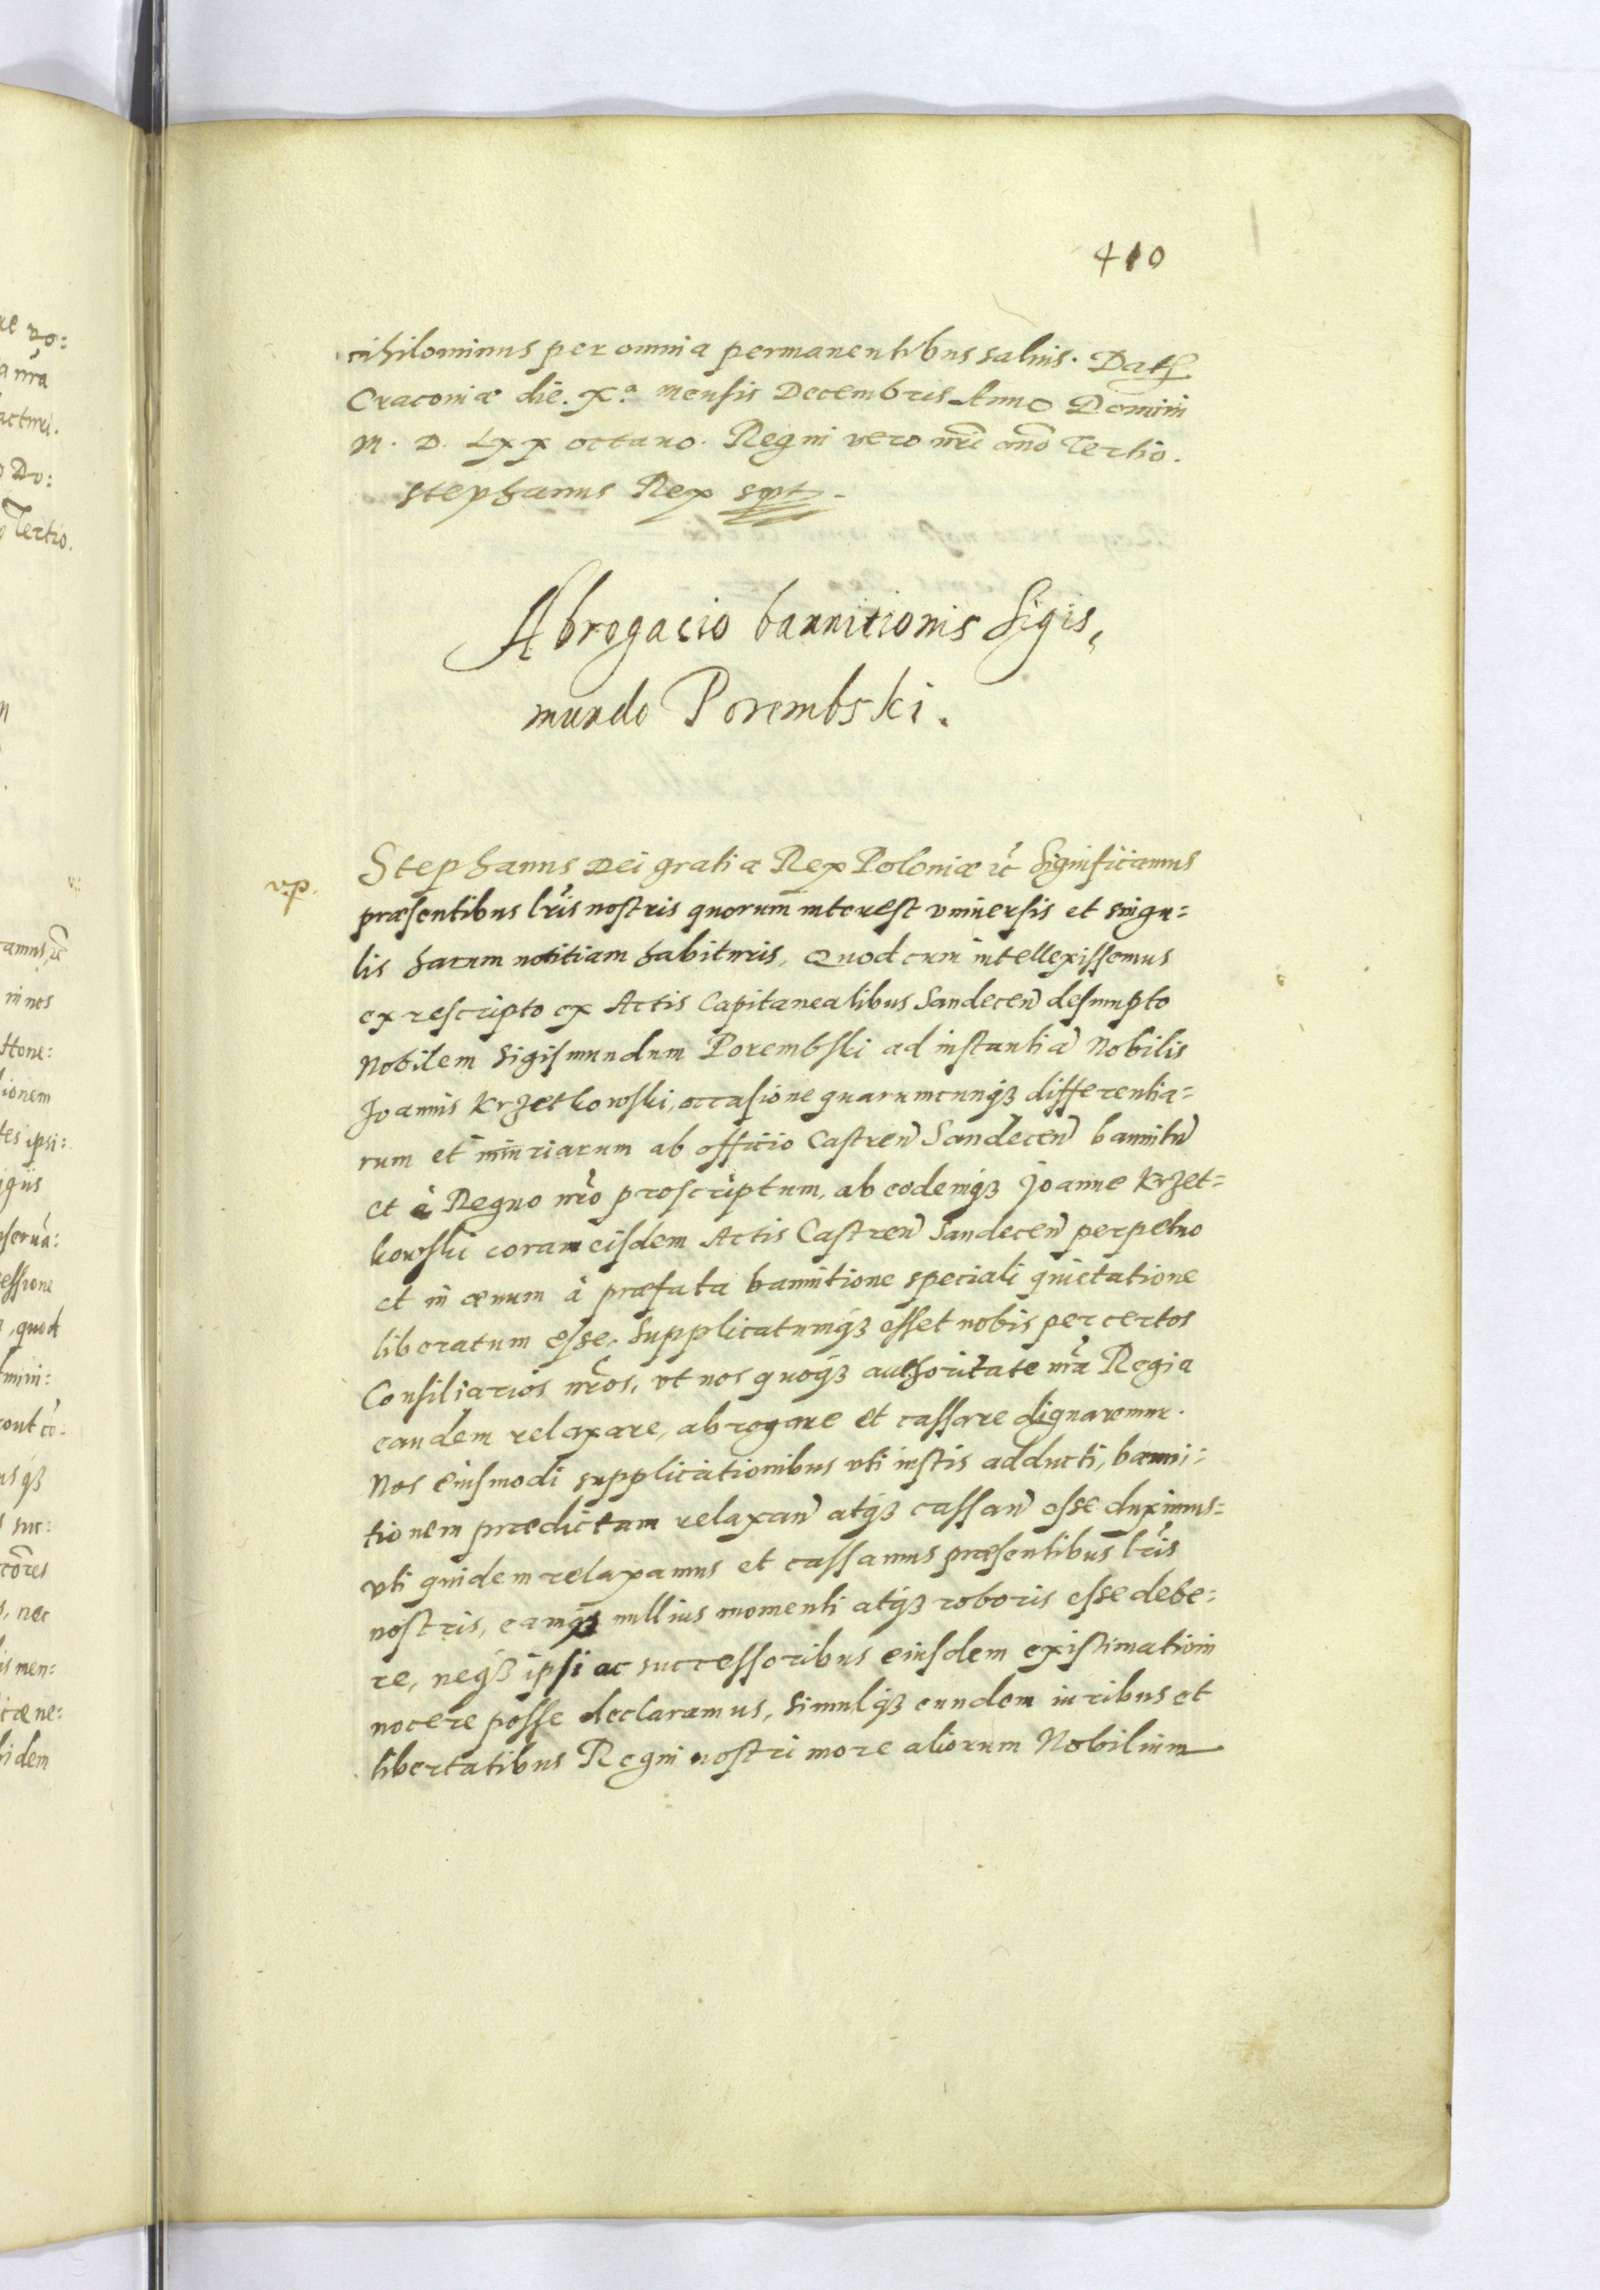 410
nihilominus per omnia permanentibus saluis. Dat̃
Cracouiæ die. Xª. mensis Decembris Anno Domini
M. D. LXX octauo. Regni vero nr̃i año Tertio.
Stephanus Rex sspt.
Abrogacio bannitionis Sigis,
mundo Porembski.
v.p.
Stephanus Dei gratia Rex Poloniæ ꝛc̃ Significamus
præsentibus lr̃is nostris quorum interest vniuersis et singu=
lis harum notitiam habituris, Quod cum intellexissemus
ex rescripto ex Actis Capitanealibus Sandeceñ desumpto
Nobilem Sigismundum Porembski ad instantiã Nobilis
Joannis Krzetkowski, occasione quarumcunqȝ differentia=
rum et iniuriarum ab officio Castreñ Sandeceñ bannitũ
et à Regno nr̃o proscriptum, ab eodemqȝ Joanne Krzet=
kowski coram eisdem Actis Castreñ Sandeceñ perpetuo
et in æuum à præfata bannitione speciali quietatione
liberatum esse. Supplicatumqȝ esset nobis per certos
Consiliarios nr̃os, vt nos quoqȝ authoritate nr̃a Regia
eandem relaxare, abrogare et cassare dignaremur.
Nos eiusmodi supplicationibus vti iustis adducti, banni=
tionem prædictam relaxañ atqȝ cassañ esse duximus=
vti quidem relaxamus et cassamus præsentibus lr̃is
nostris, eamqȝ nullius momenti atqȝ roboris esse debe=
re, neqȝ ipsi ac successoribus eiusdem existimationi
nocere posse declaramus, simulqȝ eundem iuribus et
libertatibus Regni nostri more aliorum Nobilium